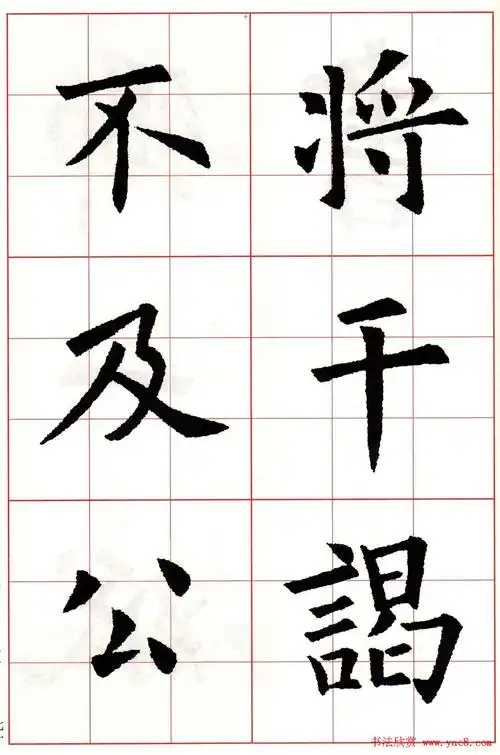 将干謁
不及公
书法欣赏 www.yac8.com